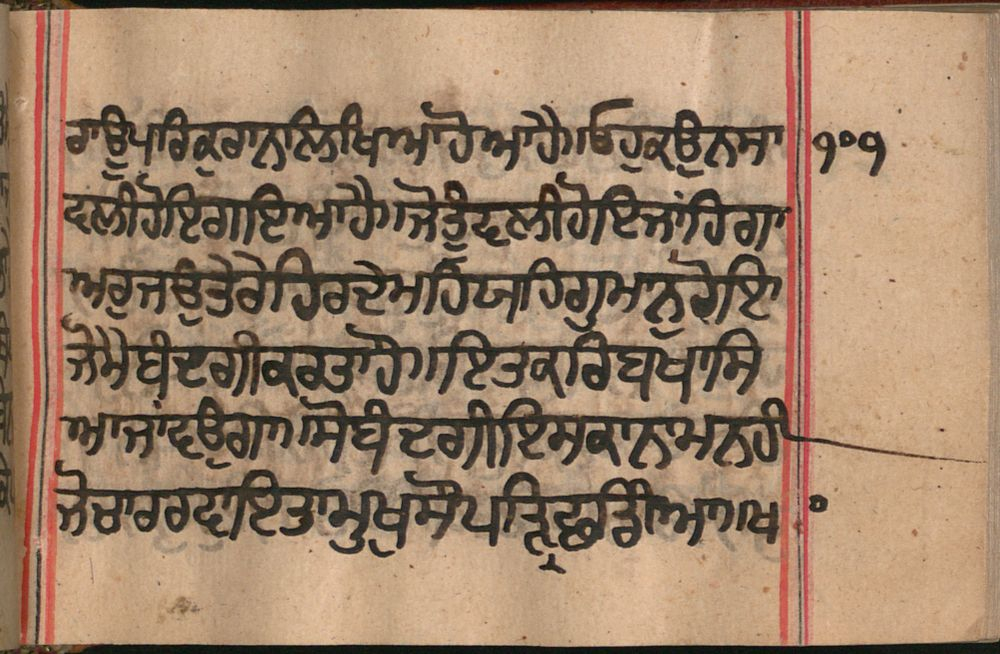 ਰਾਊਪਰਿਕੁਰਾਨਲਿਖਿਆਹੋਆਹੈ॥ਓਹੁਕਉਨਸਾ ੧੦੧
ਵਲੀਹੋਇਗਇਆਹੈ॥ਜੋਤੂੰਵਲੀਹੋਇਜਾਂਹਿਗਾ
ਅਰੁਜਉਤੇਰੇਹਿਰਦੇਮਹਿਯਹਿਗੁਮਾਨੁਹੋਇ
ਜੋਮੈਬੰਦਗੀਕਰਤਾਹੋ॥ਇਤਕਰਿਬਖਸਿ
ਆਜਾਂਵਉਗਾ॥ਸੋਬੰਦਗੀਇਸਕਾਨਾਮਨਹੀ
ਜੋਚਾਰਰਵਾਇਤਾਮੁਖਸੌਪੜਿਛਡੀਆ॥ਖ